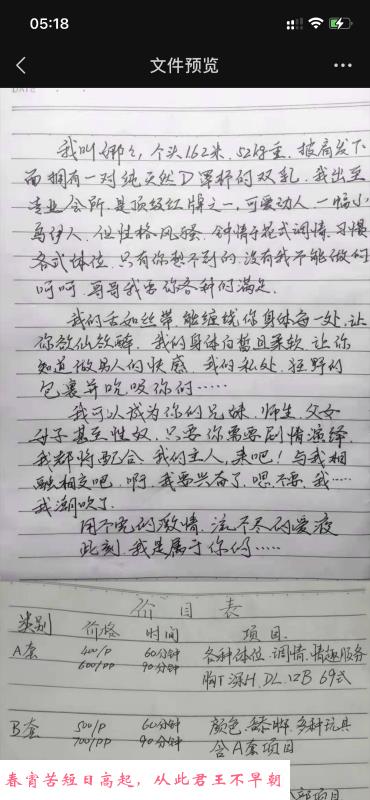 05:18
文件预览
DATE
我叫娜々，个头1.62米.52公斤重.披肩发下
面拥有一对纯天然D罩杯的双乳.我出至
专业会所.是顶级红牌之一,可爱动人.一幅小
鸟伊人.但性格风骚.钟情于花式调情.习惯
各式体位.只有你想不到的.没有我不能做的
呵呵.哥哥我当你各种的满足.
我的舌如丝带.能缠绕你身体每一处.让
你欲仙欲醉.我的身体白皙且柔软.让你
知道做男人的快感.我的私处.狂野的
包裹并吮吸你的……
我可以成为你的兄妹.师生.父女
母子甚至性奴.只要你需要剧情演绎
我都将配合.我的主人.来吧！与我相
融相交吧.啊.我要兴奋了.嗯.不要.我……
我潮吹了.
用不完的激情.流不尽的爱液
此刻.我是属于你的……
价目表
类别 价格 时间 项目.
A套 400/P 60分钟 各种体位.调情.情趣服务
600/PP 90分钟 胸T.深H.DL.12B 69式
B套 500/P 60分钟 颜色.舔脚.多种玩具
700/PP 90分钟 含A套项目
春宵苦短日高起，从此君王不早朝
部项目